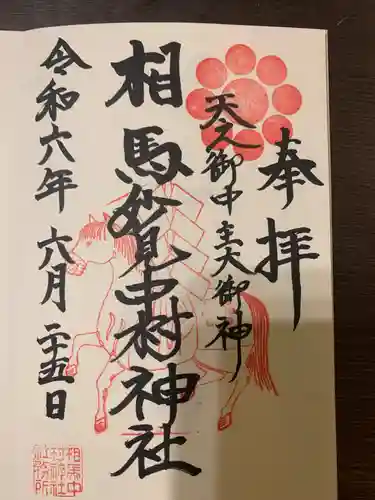 奉拝
天之御中主大御神
相馬妙見中村神社
令和六年 六月 二十五日
相馬中
村神社
社務所